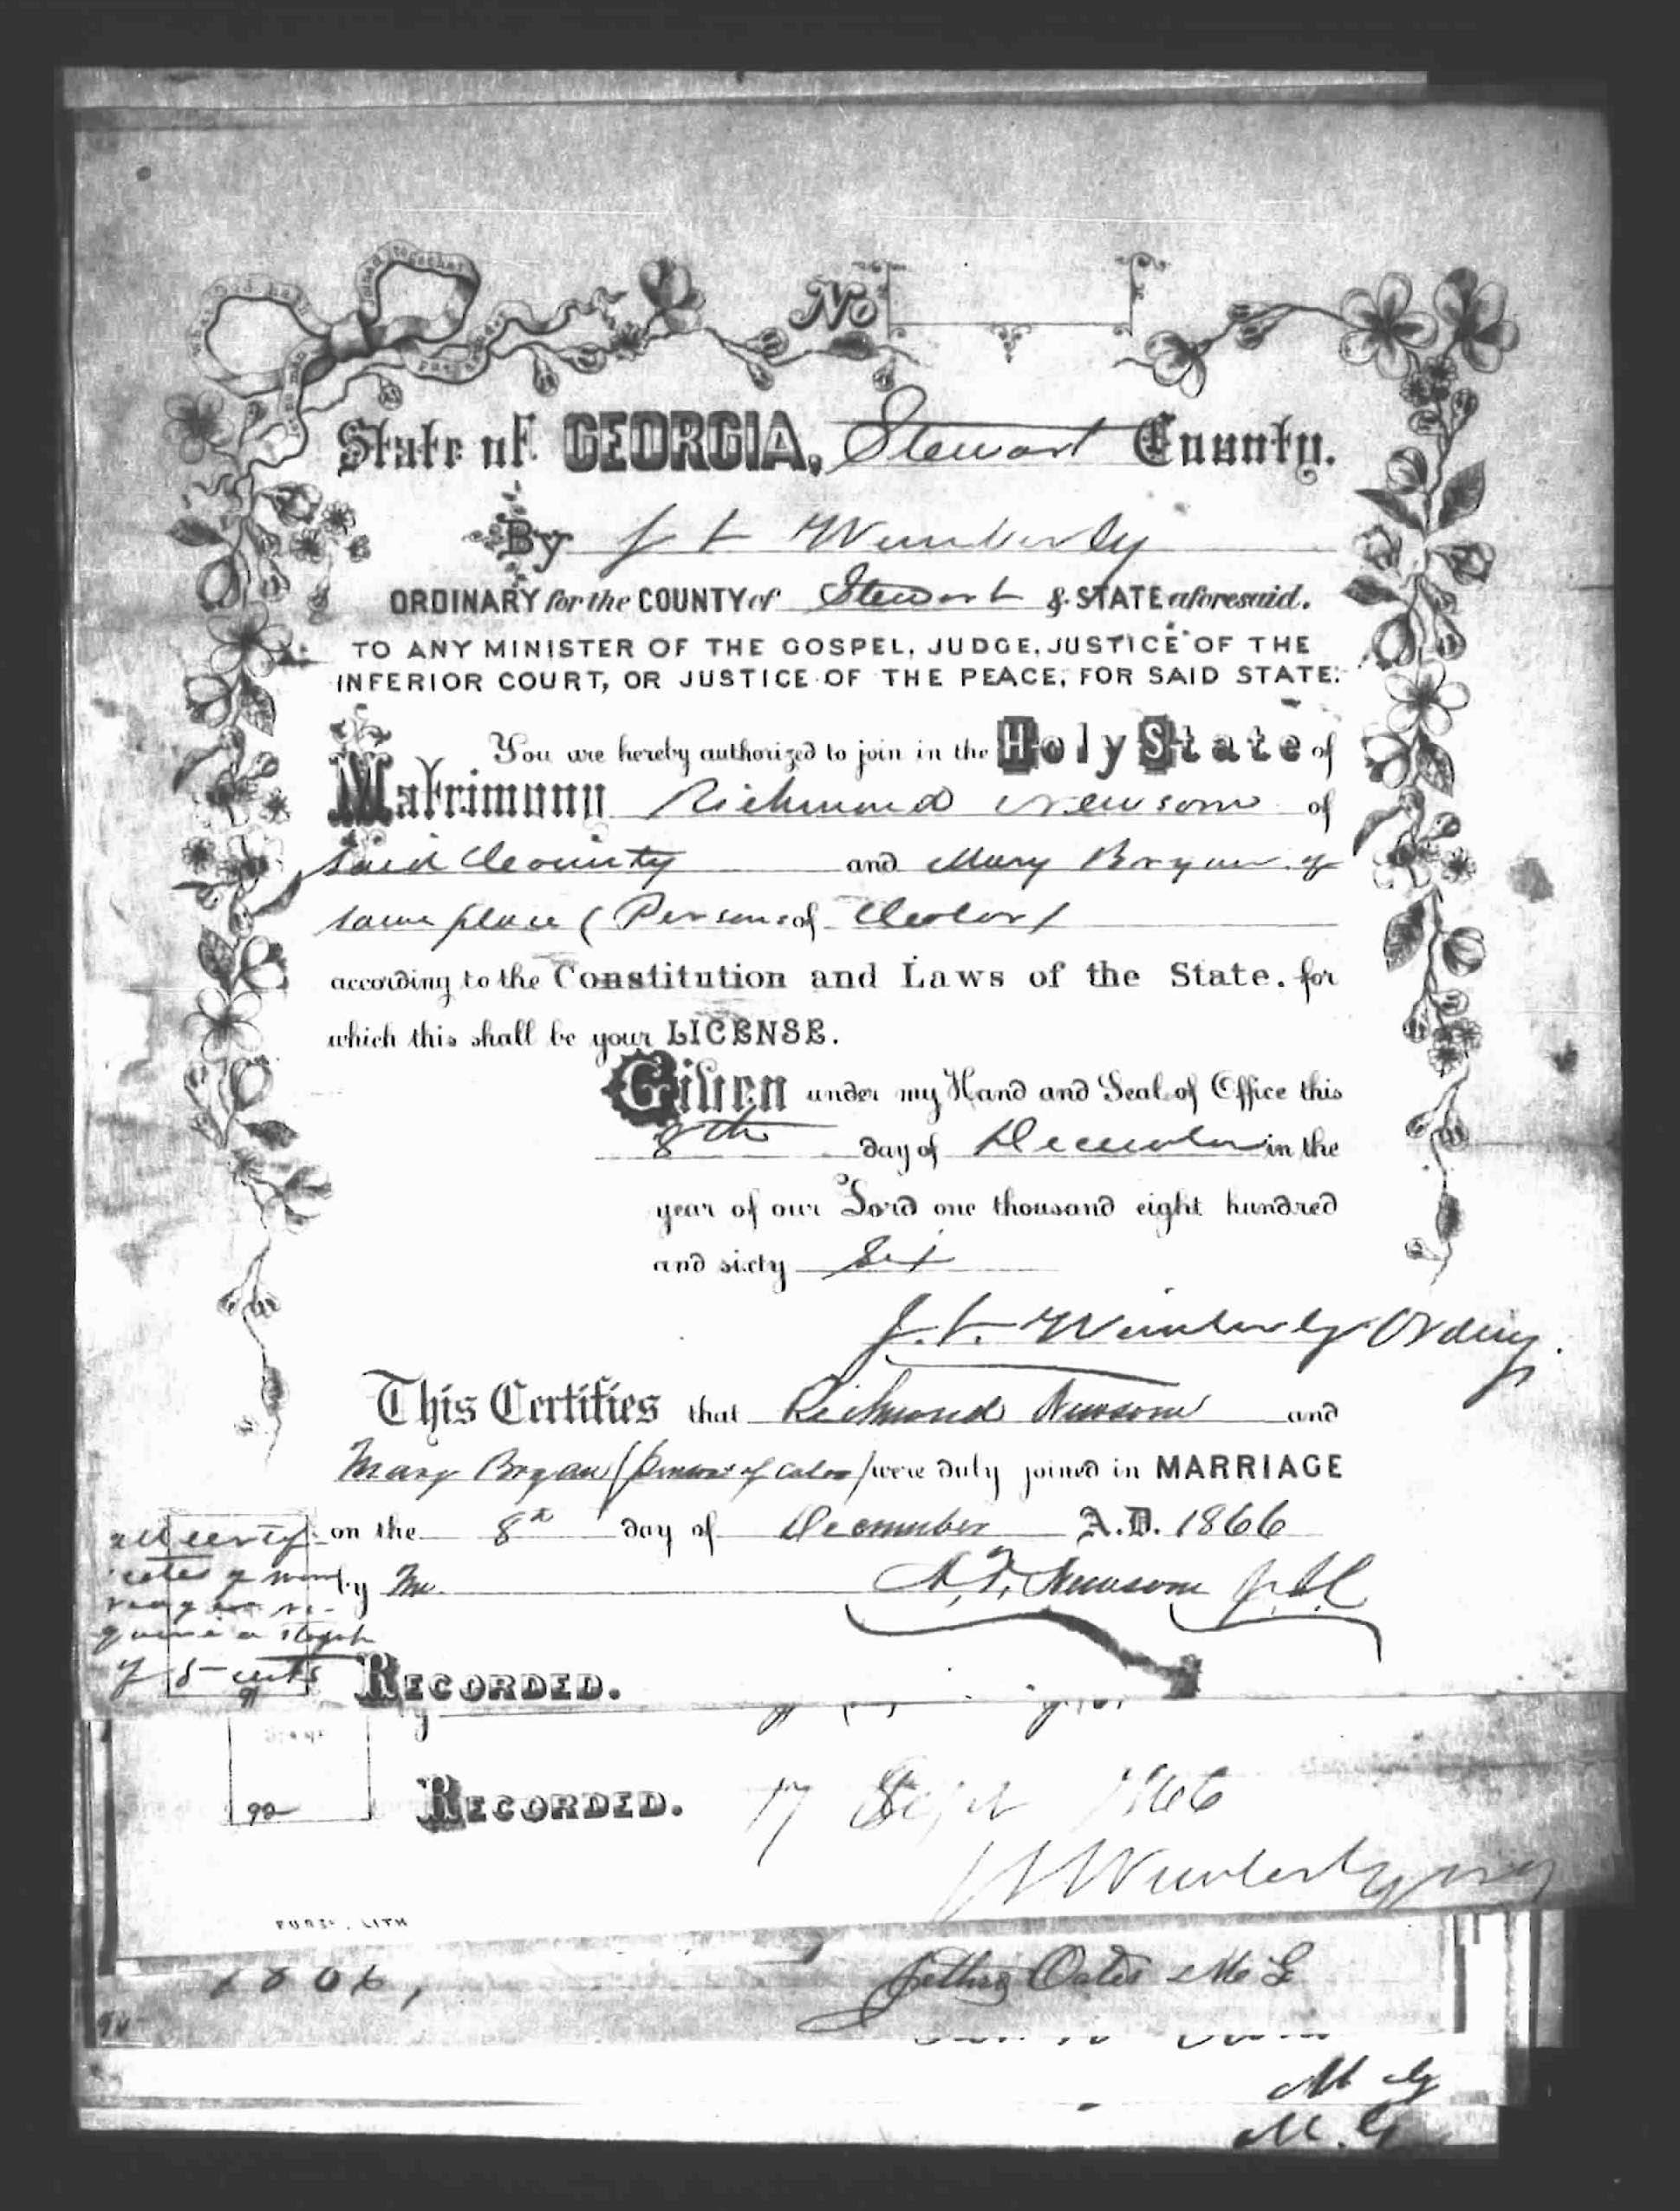 what God hath joined together
let no man put asunder
No
State of GEORGIA, Stewart County.
By J L Wimberly
ORDINARY for the COUNTY of Stewart & STATE aforesaid.
TO ANY MINISTER OF THE GOSPEL, JUDGE, JUSTICE OF THE
INFERIOR COURT, OR JUSTICE OF THE PEACE, FOR SAID STATE:
You are hereby authorized to join in the Holy State of
Matrimony Richmond Newsom of
said County and Mary Bryan of
same place (Persons of Color)
according to the Constitution and Laws of the State, for
which this shall be your LICENSE.
Given under my Hand and Seal of Office this
8th day of December in the
year of our Lord one thousand eight hundred
and sixty Six
J. L. Wimberly Ordiny.
This Certifies that Richmond Newsom and
Mary Bryan (persons of color) were duly joined in MARRIAGE
on the 8th day of December A.D. 1866
by Me A. F. Newsom J.I.C
all certifi
cates of mar
riage re-
quire a stamp
of 5 cents
RECORDED.
Stage
90
RECORDED. 17 Sept 1866
J L Wimberly ordy
LITH
1866,
Jethro Oates M G
90
M G
M. G